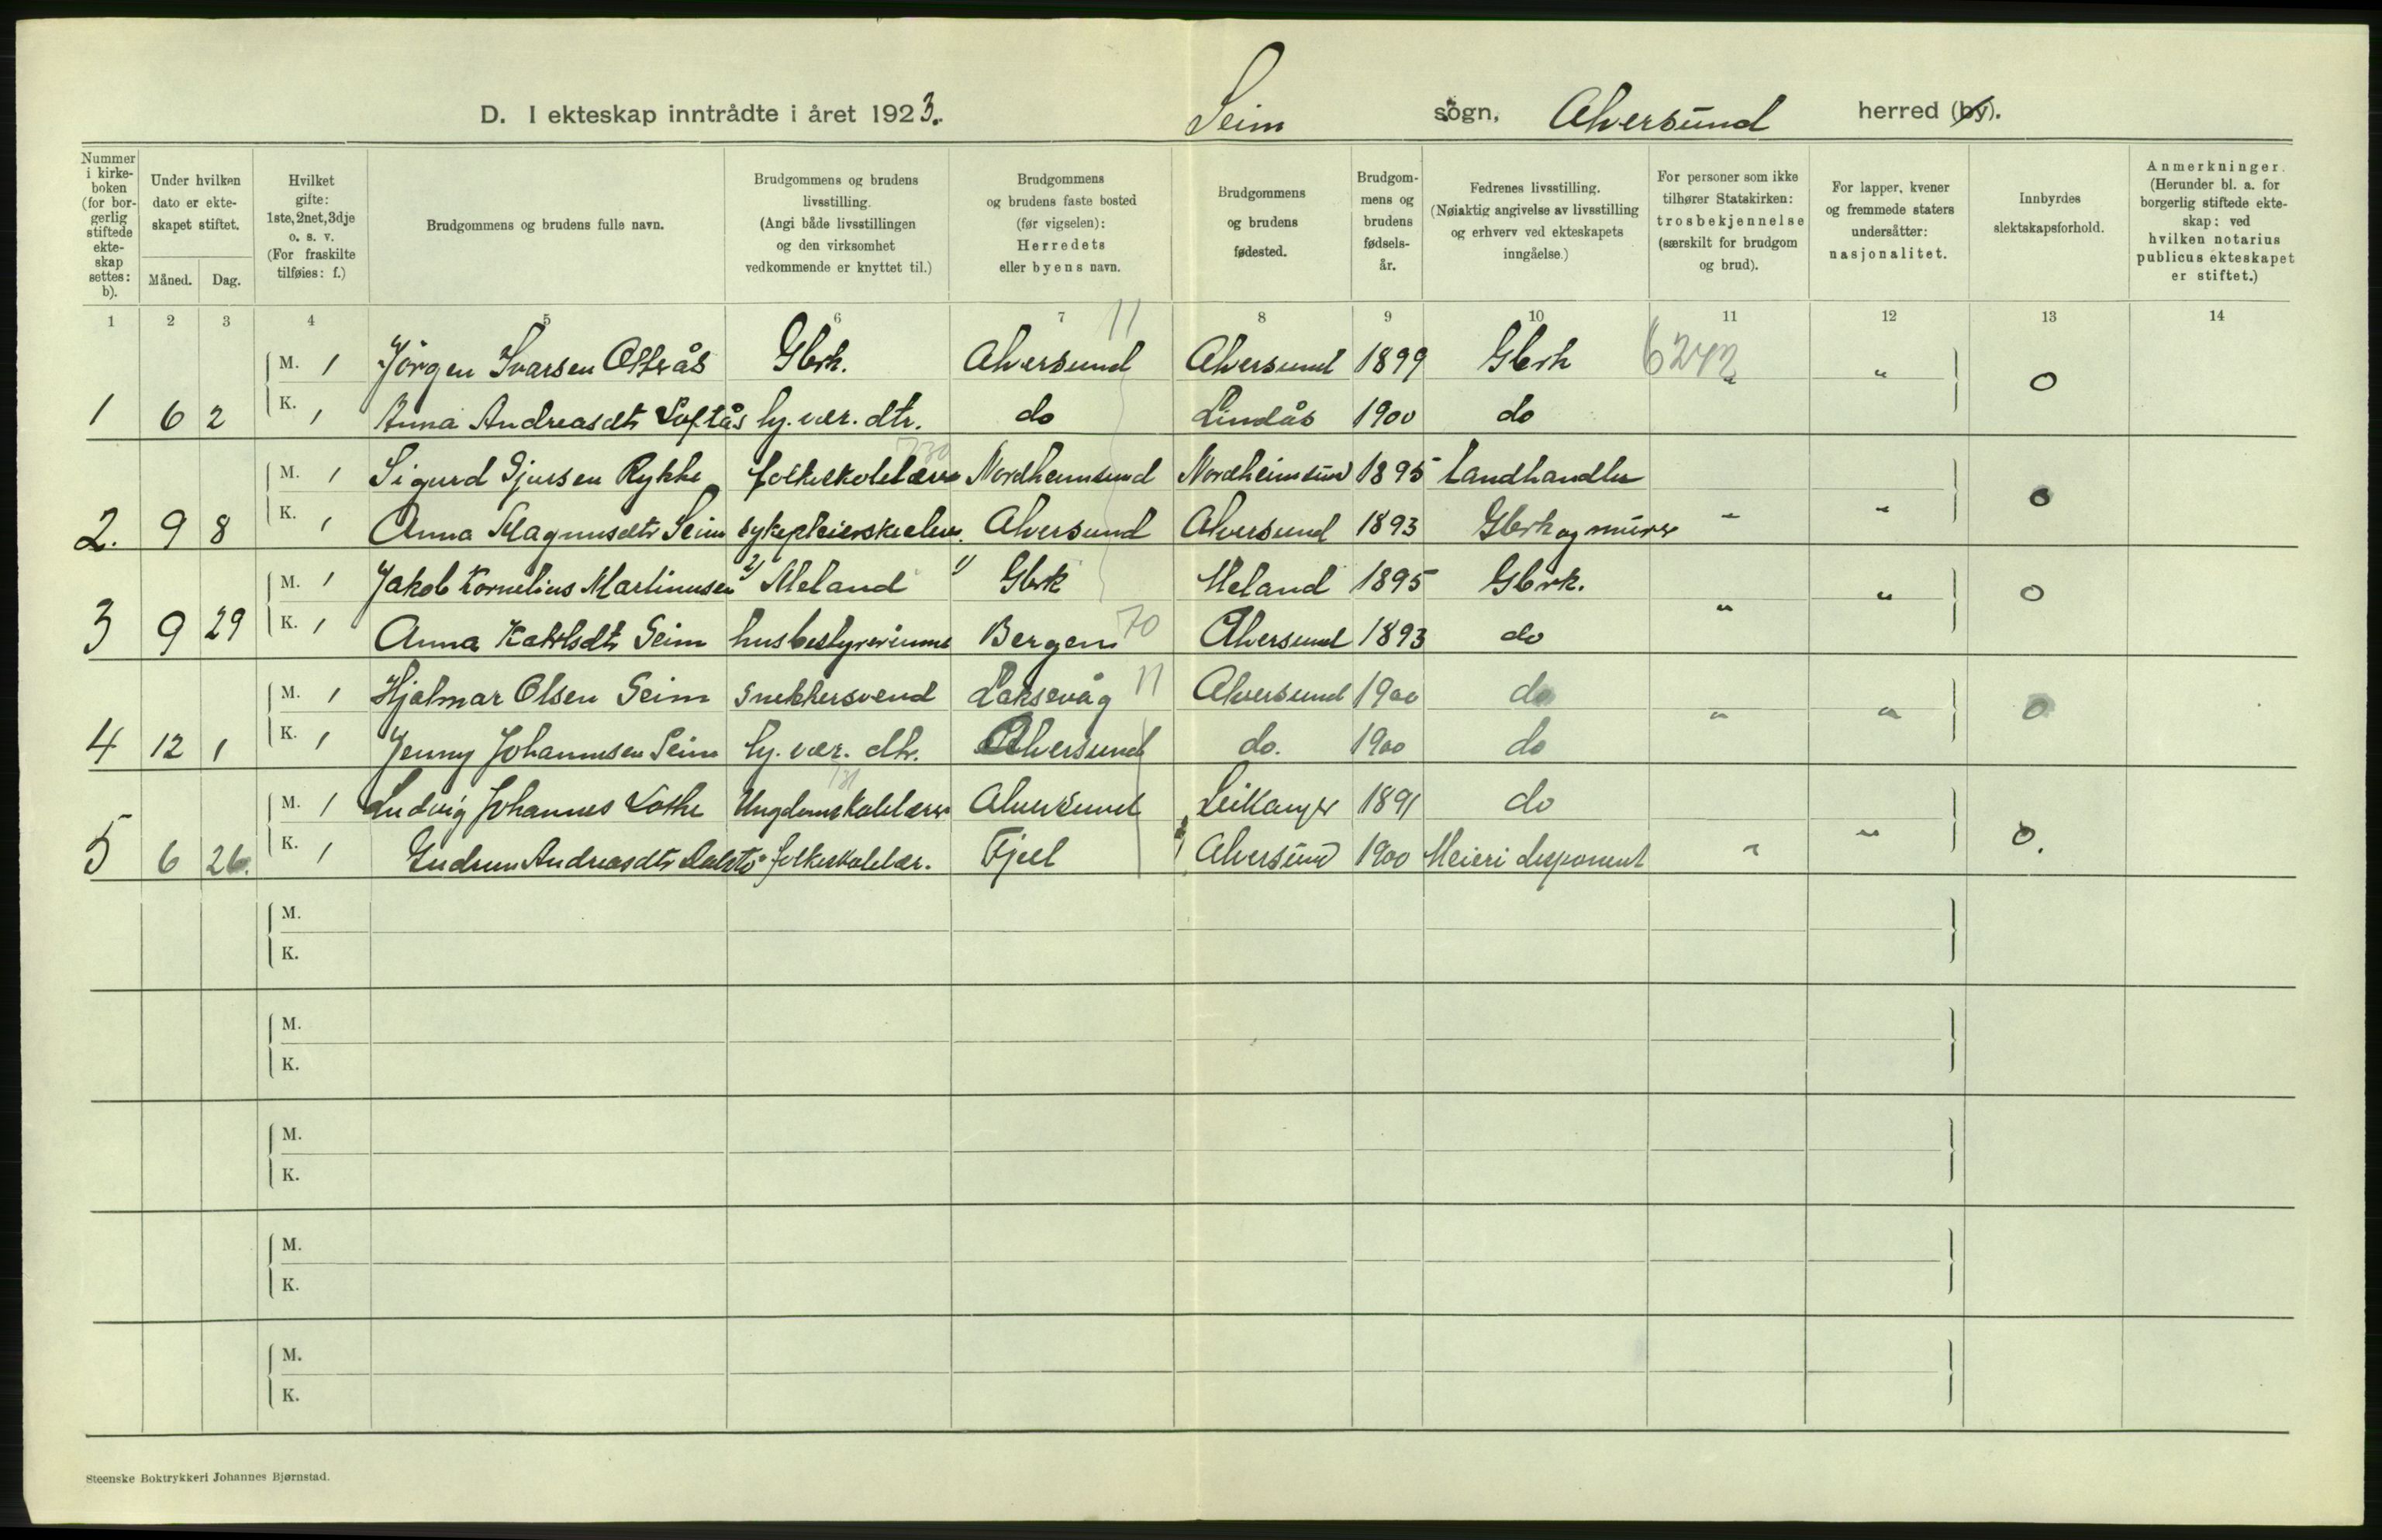 D. I ekteskap inntrådte i året 1923. Seim sogn, Alversund herred (by).
Nummer i kirkeboken (for borgerlig stiftede ekteskap settes: b).
Under hvilken dato er ekteskapet stiftet.
Måned. Dag.
Hvilket gifte: 1ste, 2net, 3dje o. s. v. (For fraskilte tilføies: f.)
Brudgommens og brudens fulle navn.
Brudgommens og brudens livsstilling. (Angi både livsstillingen og den virksomhet vedkommende er knyttet til.)
Brudgommens og brudens faste bosted (før vigselen): Herredets eller byens navn.
Brudgommens og brudens fødested.
Brudgommens og brudens fødselsår.
Fedrenes livsstilling. (Nøiaktig angivelse av livsstilling og erhverv ved ekteskapets inngåelse.)
For personer som ikke tilhører Statskirken: trosbekjennelse (særskilt for brudgom og brud).
For lapper, kvener og fremmede staters undersåtter: nasjonalitet.
Innbyrdes slektskapsforhold.
Anmerkninger. (Herunder bl. a. for borgerlig stiftede ekteskap: ved hvilken notarius publicus ekteskapet er stiftet.)
1 2 3 4 5 6 7 8 9 10 11 12 13 14
11
M. 1 Jörgen Ivarsen Gbrk. Alversund Alversund 1899 Gbrk 6242 " " 0
1 6 2 K. 1 Anna Andreasdtr Loftås hj. vær. dtr. do Lindås 1900 do
730
M. 1 Sigurd Gjersen Rykke folkeskolelærer Nordheimsund Nordheimsund 1895 Landhandler
2. 9 8 K. 1 Anna Magnusdtr Seim sykepleierskeelev. Alversund Alversund 1893 Gbrk og murer " " 0
M. 1 Jakob Kornelius Martinusen 2) Meland 1) Gbrk Meland 1895 Gbrk. " " 0
3 9 29 K. 1 Anna Seim husbestyrerinne Bergen 70 Alversund 1893 do
M. 1 Hjalmar Olsen Seim Snekkersvend Laksevåg 11 Alversund 1900 do " " 0
4 12 1 K. 1 Jenny Johannesen Seim hj. vær. dtr. Alversund do. 1900 do
131
M. 1 Ludvig Johannes Lothe Ungdomskolelærer Alversund Leikanger 1891 do
5 6 26. K. 1 Gudrun Andreasdtr folkeskolelær. Fjell Alversund 1900 Meieri disponent " " 0.
M.
K.
M.
K.
M.
K.
M.
K.
M.
K.
Steenske Boktrykkeri Johannes Bjørnstad.